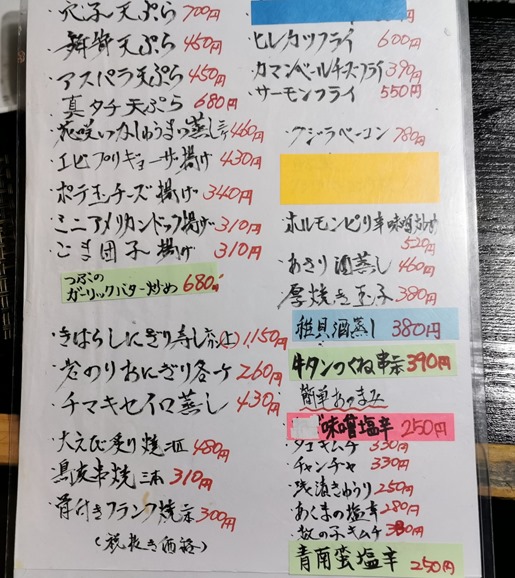 穴子天ぷら 700円
舞茸天ぷら 450円
アスパラ天ぷら 450円
真タチ天ぷら 680円
花咲いかしゅうまい蒸し 460円
エビプリギョーザ揚げ 430円
ポテトチーズ揚げ 340円
ミニアメリカンドック揚げ 310円
ごま団子揚げ 310円
つぶの
ガーリックバター炒め 680円
きはらしにぎり寿し (上) 1,150円
岩のりおにぎり各ケ 260円
チマキセイロ蒸し 430円
大えび炙り焼 480円
串焼 310円
骨付きフランク焼 300円
(税抜き価格)
ヒレカツフライ 600円
カマンベールチーズフライ 390円
サーモンフライ 550円
クジラベーコン 780円
ホルモンピリ辛味噌炒め
520円
あさり酒蒸し 460円
厚焼き玉子 380円
稚貝酒蒸し 380円
牛タンつくね串 390円
簡単おつまみ
味噌塩辛 250円
タコキムチ 330円
チャンヂャ 330円
浅漬きゅうり 250円
あくまの塩辛 280円
数の子キムチ
青南蛮塩辛 250円